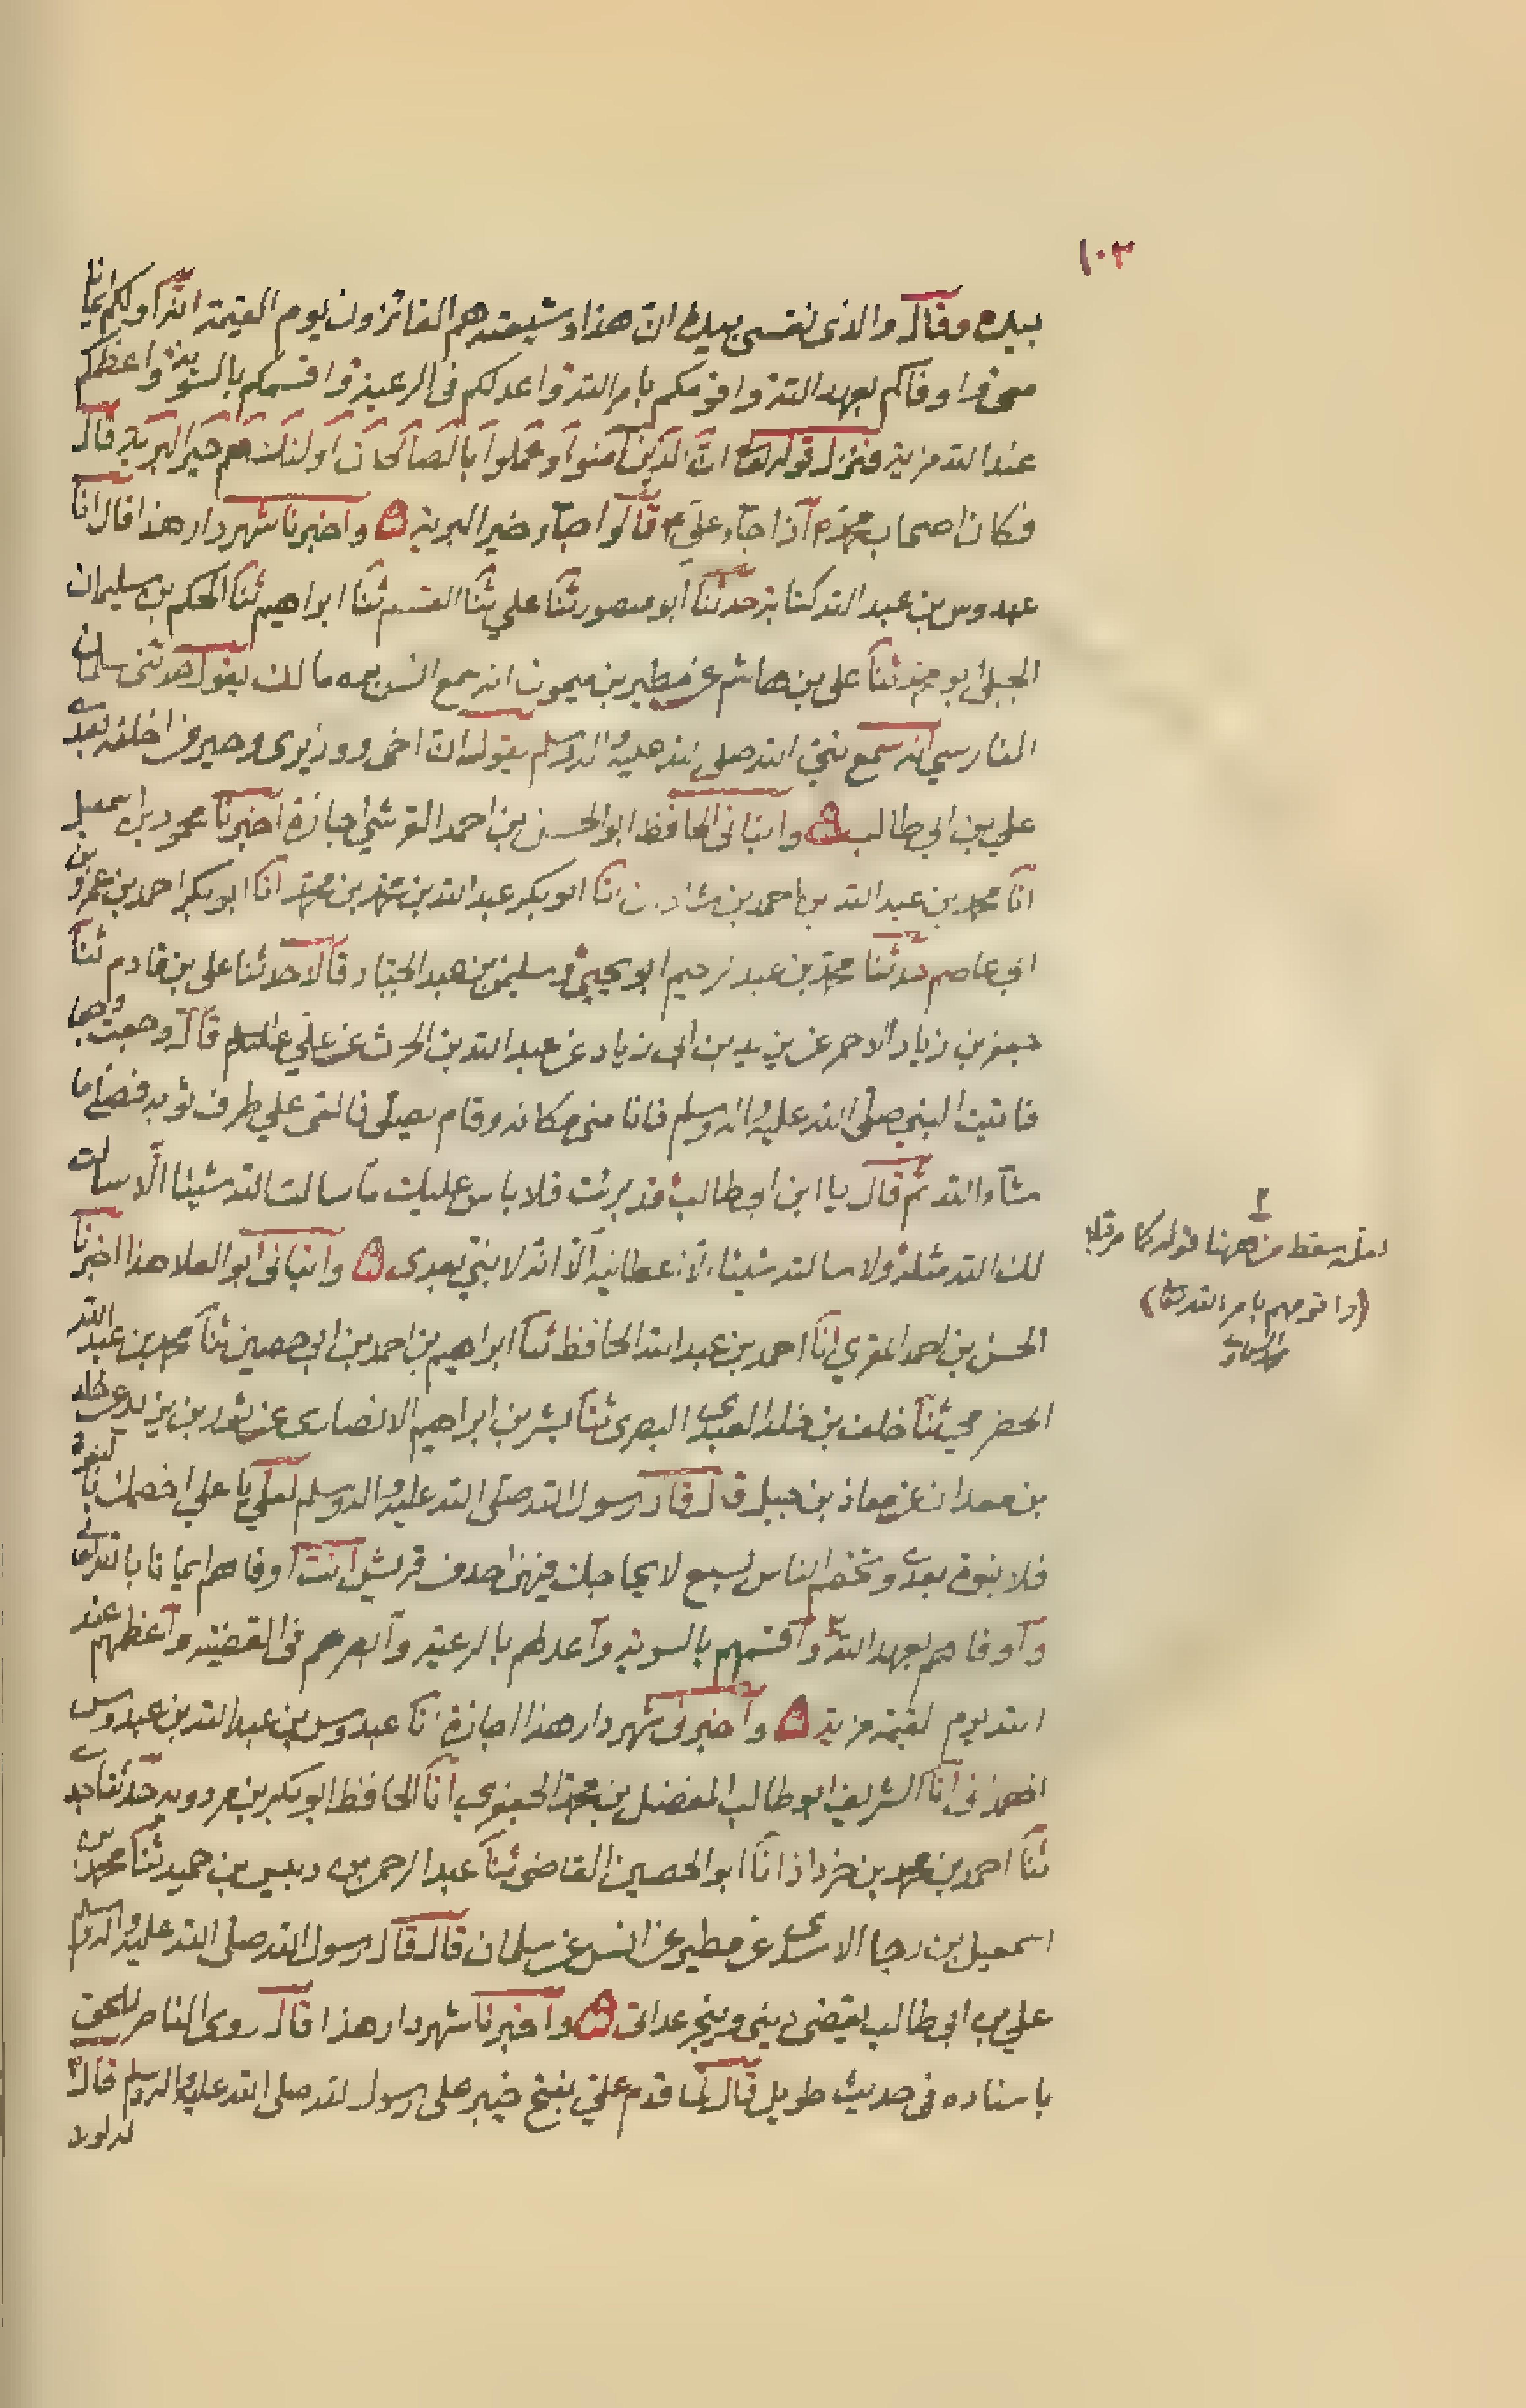 ١٠٣
بيده وقال والذى نفسى بيده ان هذا وشيعته هم الفائزون يوم القيمة انه اولكم ايمانا
معى واوفاكم بعهد الله واقومكم بامر الله واعدلكم فى الرعية واقسمكم بالسوية واعظمكم
عند الله مزية فنزل قوله تعا ان الذين آمنوا وعملوا بالصالحات اولئك هم خير البرية قال
فكان اصحاب محمد اذا جاء على قالوا جاء خير البرية واخبرنا شهردار هذا قال انا
عبدوس بن عبد الله كتابة حدثنا ابو منصور ثنا علي ثنا القسم ثنا ابراهيم ثنا الحكم بن سليمان
الجبلى ابو محمد ثنا على بن هاشم عن مطير بن ميمون انه سمع انس بن مالك يقول حدثنى سلمان
الفارسي انه سمع نبى الله صلى الله عليه واله وسلم يقول ان اخى ووزيرى وخير من اخلفه بعدى
علي بن ابي طالب وانبانى الحافظ ابو الحسن بن احمد القرشي اجازة اخبرنا محمود بن اسمعيل
انا محمد بن عبد الله بن احمد بن شاذان انا ابو بكر عبد الله بن محمد بن محمد انا ابو بكر احمد بن عمرو بن
ابى عاصم حدثنا محمد بن عبد الرحيم ابو يحيى وسليمن بن عبد الجبار قالا حدثنا على بن قادم ثنا
جعفر بن زياد الاحمر عن يزيد بن ابى زياد عن عبد الله بن الحرث عن علي عليه السلم قال وجعت وجعا
فاتيت النبي صلى الله عليه واله وسلم فانامنى مكانه وقام يصلى فالقى علي طرف ثوبه فصلى ما
شاء الله ثم قال يا ابن ابى طالب قد برئت فلا باس عليك ما سالت الله شيئا الا سالت
لك الله مثله ولا سالت الله شيئا الا اعطانيه الا انه لا نبي بعدى وانبانى ابو العلا هذا اخبرنا
الحسن بن احمد المقري انا احمد بن عبد الله الحافظ ثنا ابراهيم بن احمد بن ابي حصين ثنا محمد بن عبد الله
الحضرمي ثنا خلف بن خلد العبدى البصرى ثنا بشر بن ابراهيم الانصارى عن ثور بن يزيد عن خلد
بن معدان عن معاذ بن جبل قال قال رسول الله صلى الله عليه واله وسلم لعلي يا علي اخصمك بالنبوة
فلا نبوة بعدى وتخصم الناس بسبع لا يحاجك فيهن احد من قريش انت اوفاهم ايمانا بالله تعالى
واوفاهم بعهد الله واقسمهم بالسوية واعدلهم بالرعية وابصرهم فى القضية واعظمهم عند
الله يوم القيمة مزية واخبرنى شهردار هذا اجازة انا عبدوس بن عبد الله بن عبدوس
الهمذنى انا الشريف ابو طالب المفضل بن محمد الجعفرى انا الحافظ ابو بكر بن مردويه حدثنا جدى
ثنا احمد بن محمد بن خرداذ انا ابو الحصين القاضى ثنا عبد الرحمن بن دبيس بن حميد ثنا محمد بن
اسمعيل بن رجا الاسدى عن مطير عن انس عن سلمان قال قال رسول الله صلى الله عليه واله وسلم
علي بن ابي طالب يقضى دينى وينجز عداتى واخبرنا شهردار هذا قال روى الناصر للحق
باسناده فى حديث طويل قال لما قدم علي بفتح خيبر على رسول الله صلى الله عليه واله وسلم قال
له لولا
٢
لعله سقط من ههنا قوله كما مر قبلا
(واقومهم بامر الله تعا)